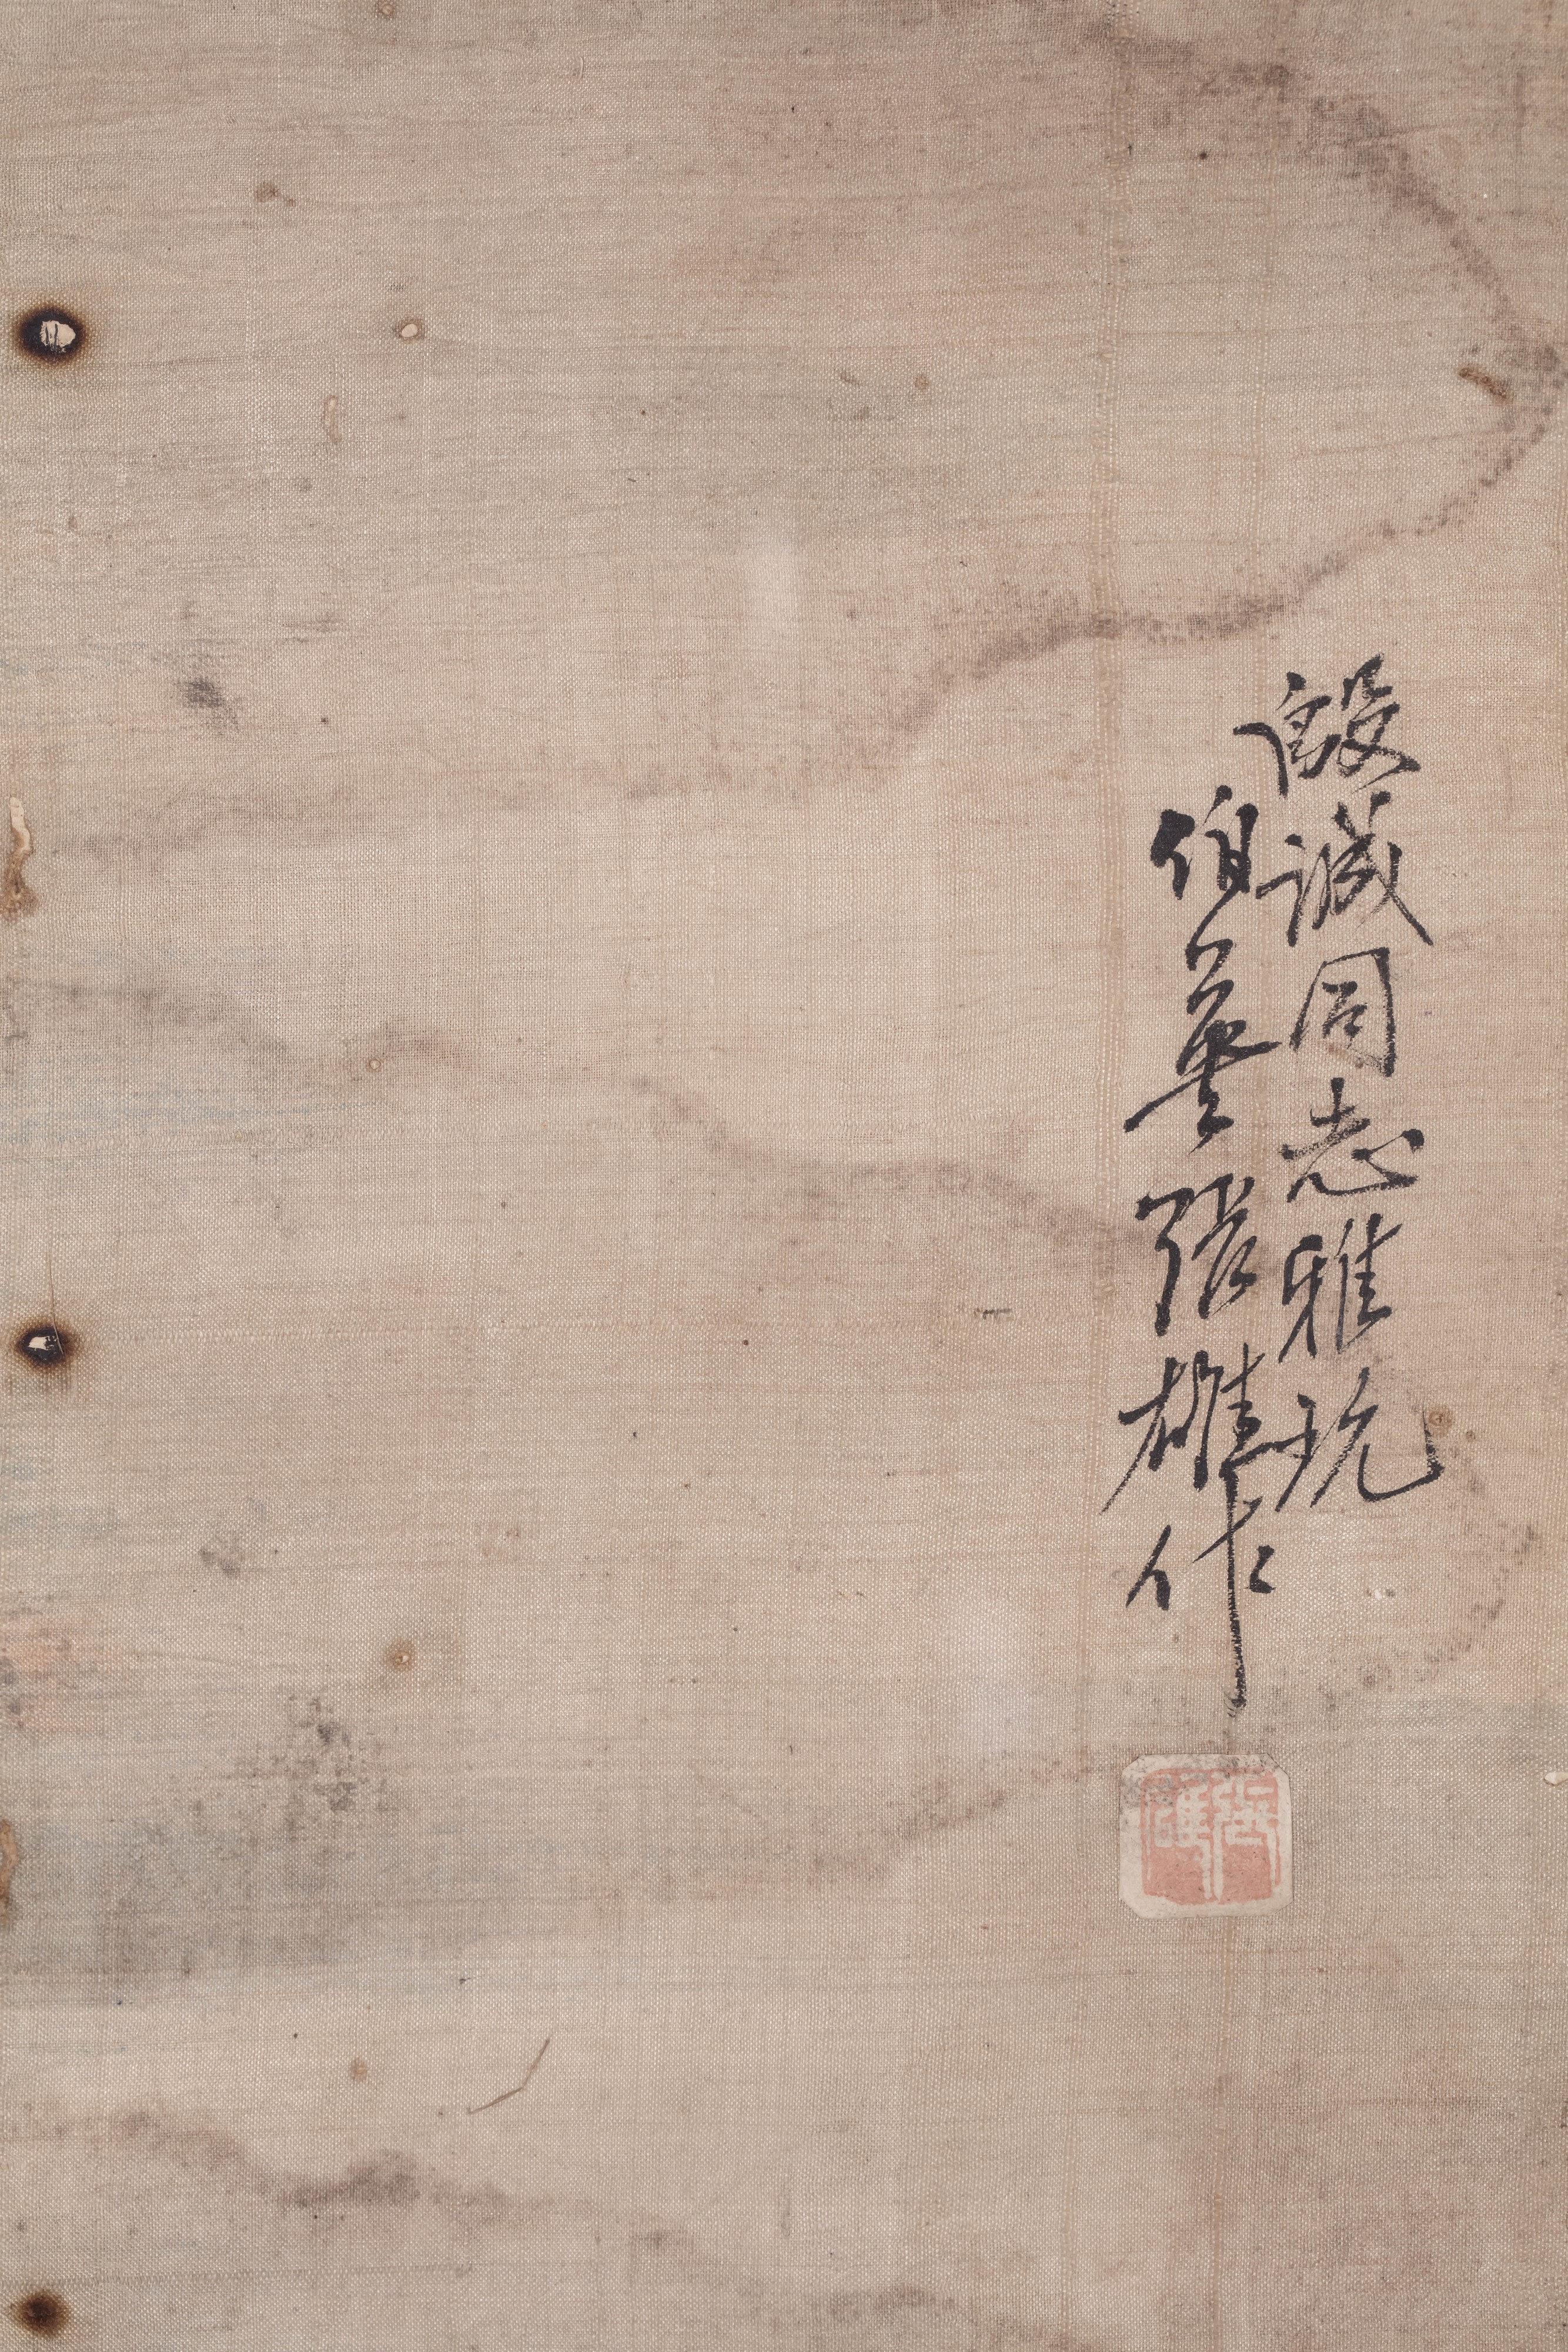 毅誠同志雅玩
伯英張雄作
張雄